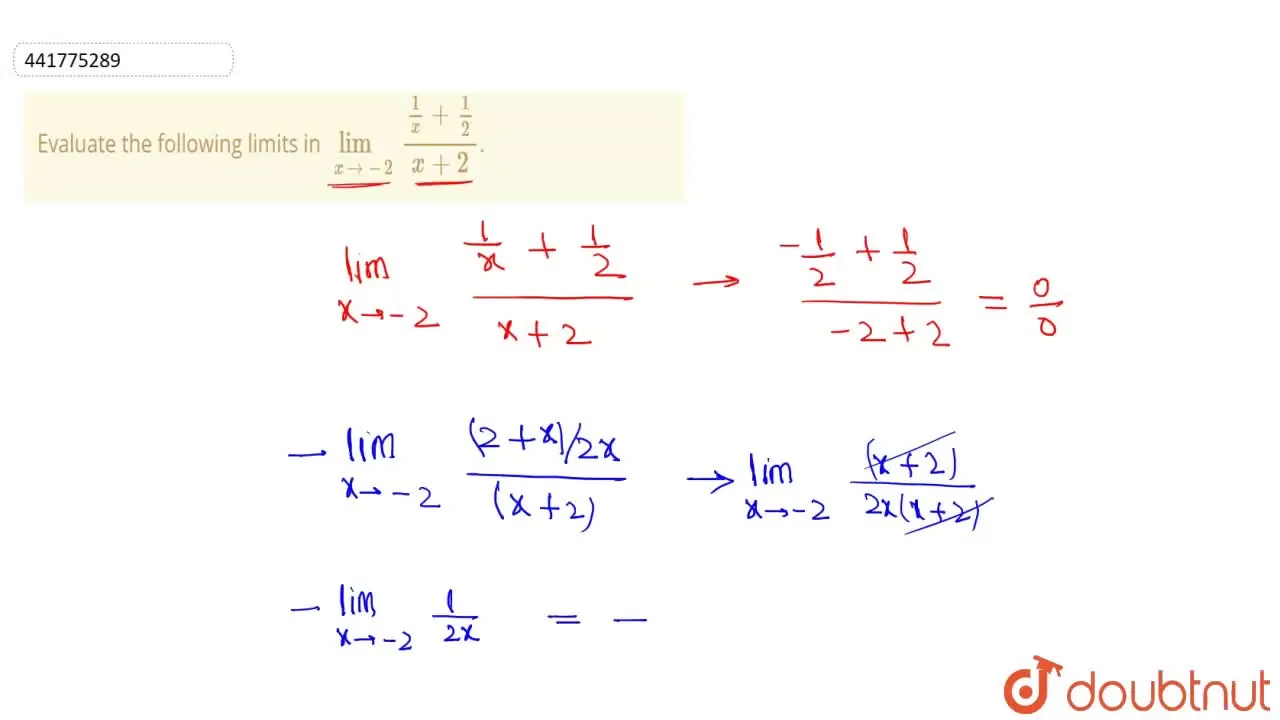 441775289
Evaluate the following limits in lim x→−2 (1/x + 1/2)/(x + 2).
lim x→−2 (1/x + 1/2)/(x+2) → (−1/2 + 1/2)/(−2+2) = 0/0
– lim x→−2 ((2+x)/2x)/(x+2) → lim x→−2 (x+2)/(2x(x+2))
– lim x→−2 1/2x = –
doubtnut